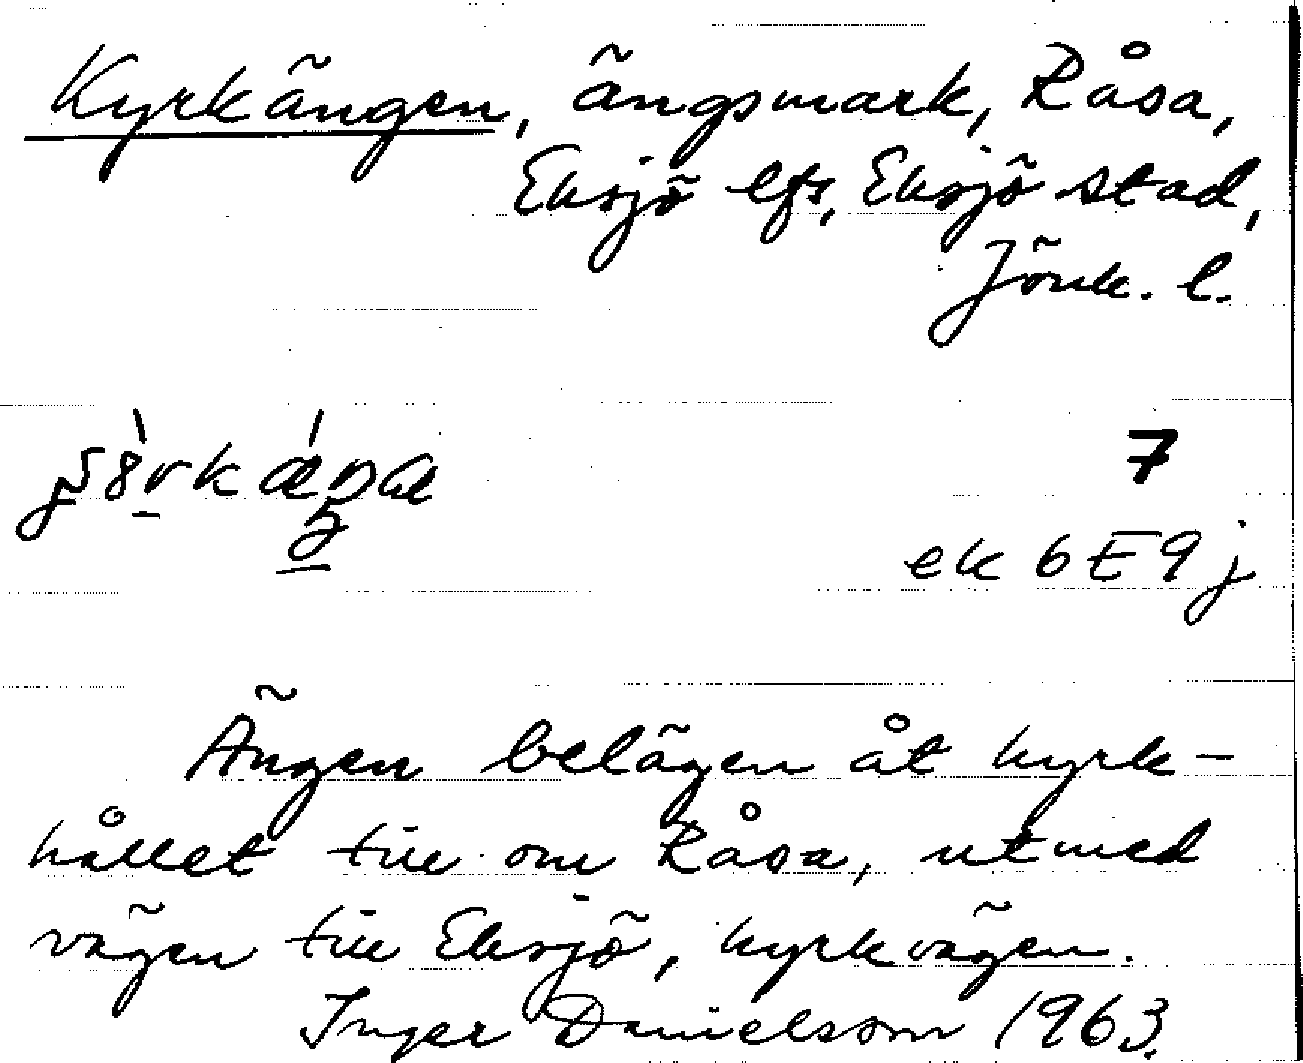 Kyrkängen, ängsmark, Råsa,
Eksjö lfs, Eksjö stad,
Jönk. l.
7
ek 6E9j
Ängen belägen åt kyrk-
hållet till om Råsa, utmed
vägen till Eksjö, kyrkvägen.
Inger Danielsson 1963.